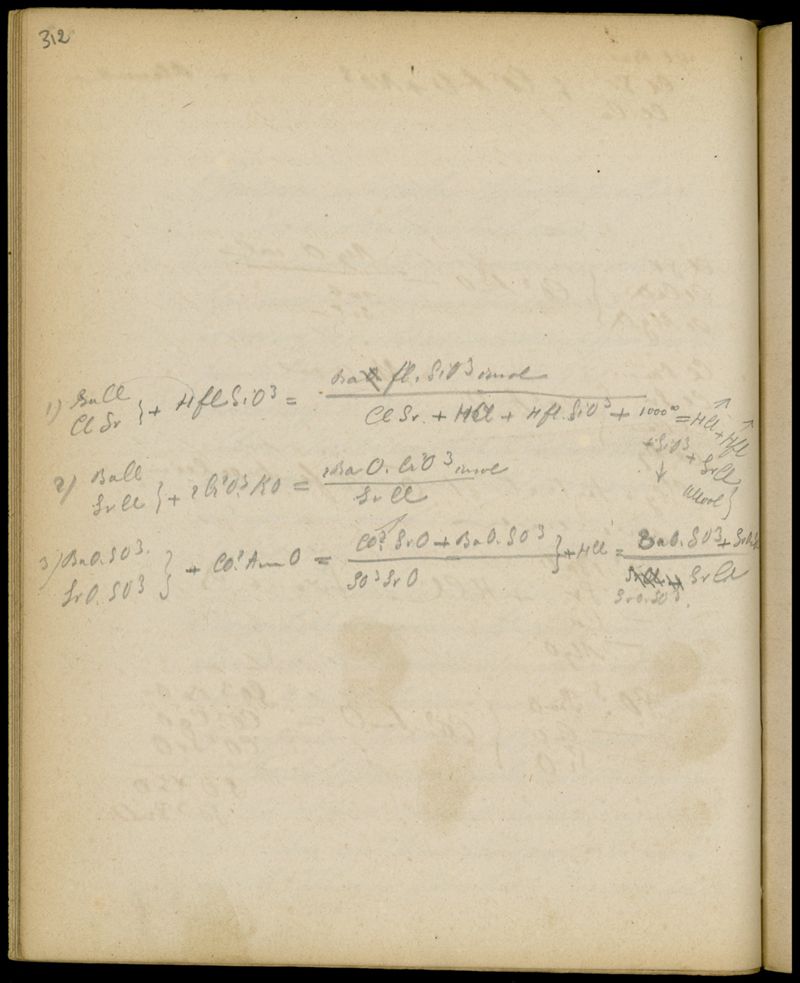 312
1) BaCl
Cl Sr } + Hfl SiO3 = Ba fl. SiO3 insol
Cl Sr. + HCl + Hfl. SiO3 + 1000° = HCl + Hfl
+ SiO3 + SrCl
↓ Alcool }
2) BaCl
SrCl } + 2CrO3 KO = 2BaO. CrO3 insol
SrCl
3) BaO. SO3.
SrO. SO3 } + CO2 Am O = CO2 SrO + BaO. SO3
SO3 SrO } + HCl = BaO. SO3 +
SrCl
SrO. SO3.